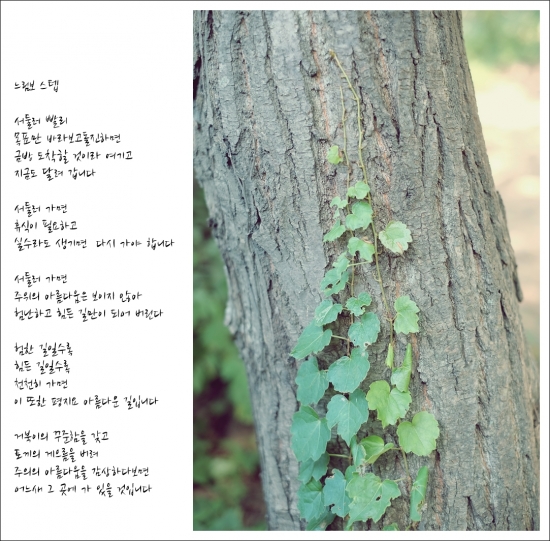 느림보 스텝
서둘러 빨리
목표만 바라보고돌진하면
금방 도착할 것이라 여기고
지금도 달려 갑니다
서둘러 가면
휴식이 필요하고
실수라도 생기면 다시 가야 합니다
서둘러 가면
주위의 아름다움은 보이지 않아
험난하고 힘든 길만이 되어 버린다
험한 길일수록
힘든 길일수록
천천히 가면
이 또한 평지요 아름다운 길입니다
거북이의 꾸준함을 갖고
토끼의 게으름을 버려
주위의 아름다움을 감상하다보면
어느새 그 곳에 가 있을 것입니다